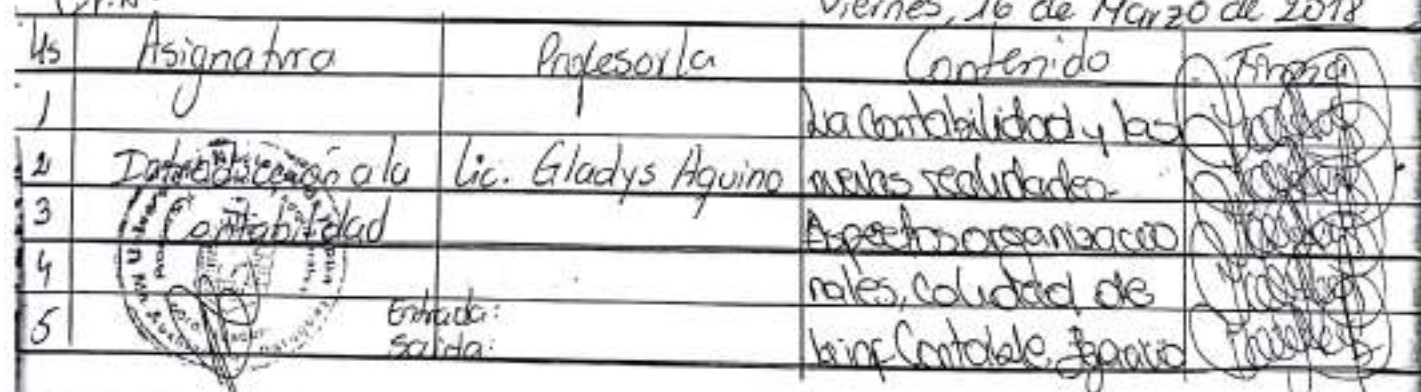 Viernes, 16 de Marzo de 2018
Hs Asignatura Profesor/a Contenido Firma
1 La Contabilidad y las
2 Introducción a la Lic. Gladys Aquino nuevas realidades.
3 Contabilidad Aspectos organizacio
4 nales, Calidad de
5 Entrada: la inf Contable,
Salida: